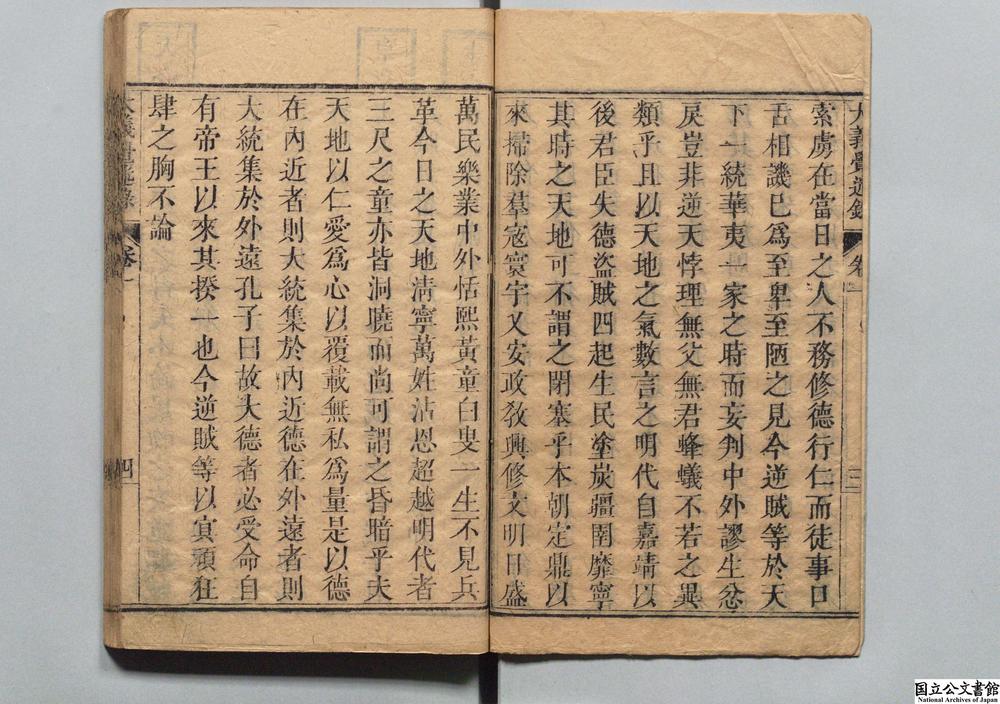 大義覺迷錄 卷一 三
索虜在當日之人不務修德行仁而徒事口
舌相譏已爲至卑至陋之見今逆賊等於天
下一統華夷一家之時而妄判中外謬生忿
戾豈非逆天悖理無父無君蜂蟻不若之異
類乎且以天地之氣數言之明代自嘉靖以
後君臣失德盜賊四起生民塗炭疆圉靡寧
其時之天地可不謂之閉塞乎本朝定鼎以
來掃除羣寇寰宇乂安政敎興修文明日盛
萬民樂業中外恬熙黃童白叟一生不見兵
革今日之天地清寧萬姓沾恩超越明代者
三尺之童亦皆洞曉而尚可謂之昏暗乎夫
天地以仁愛爲心以覆載無私爲量是以德
在內近者則大統集於內近德在外遠者則
大統集於外遠孔子曰故大德者必受命自
有帝王以來其揆一也今逆賊等以冥頑狂
肆之胸不論
大義覺迷錄 卷一 四
国立公文書館
National Archives of Japan